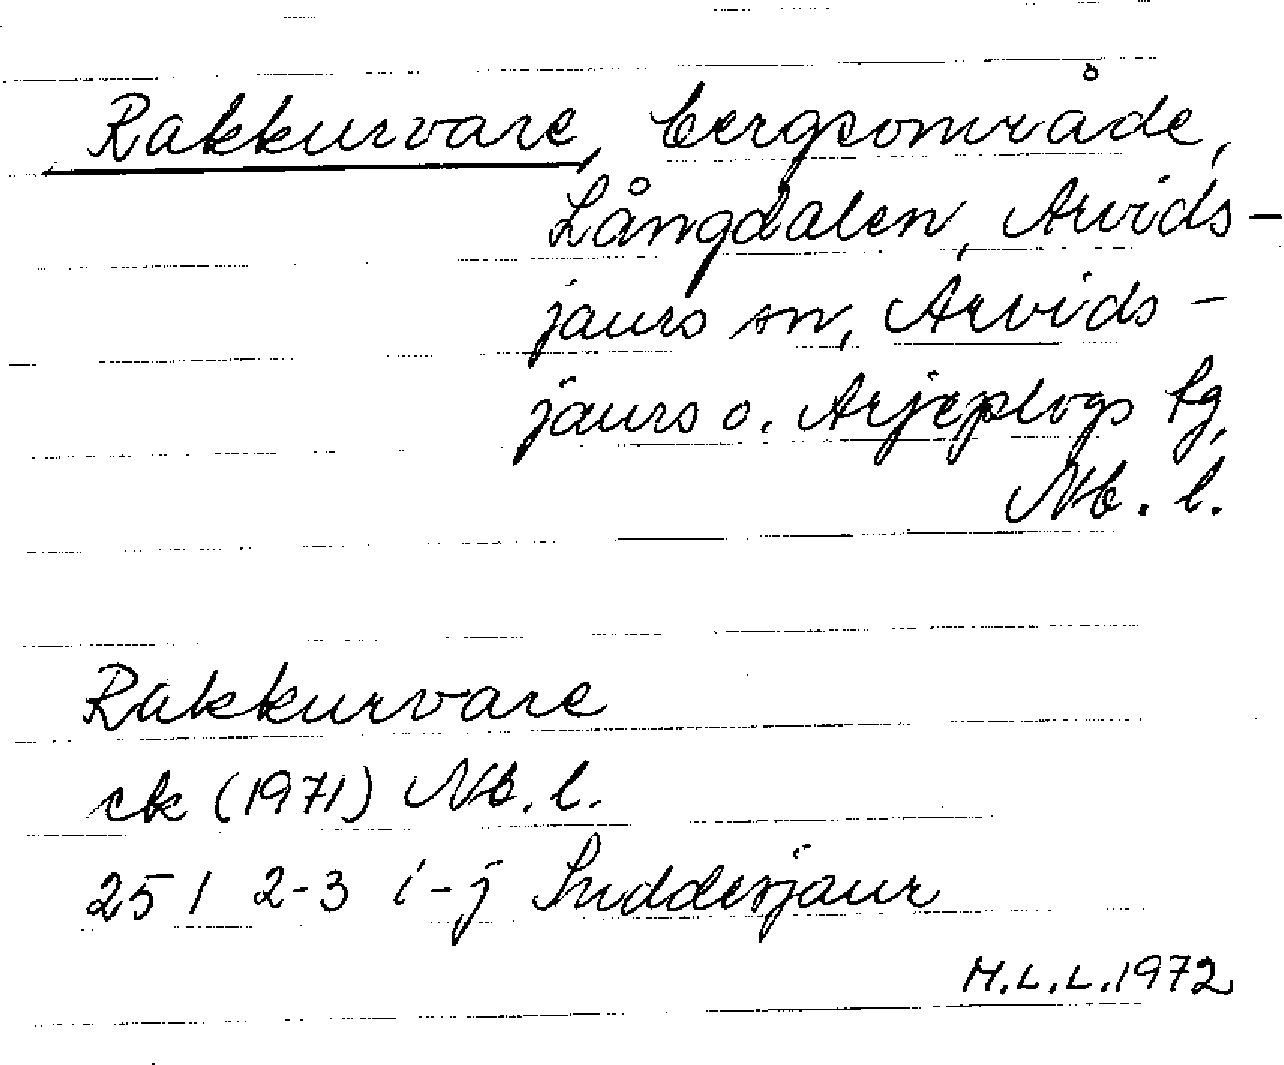 Rakkurvare, bergsområde,
Långdalen, Arvids-
jaurs sn, Arvids-
jaurs o. Arjeplogs tg,
Nb. l.
Rakkurvare
ek (1971) Nb. l.
25 I 2-3 i-j Sudderjaur
M.L.L. 1972